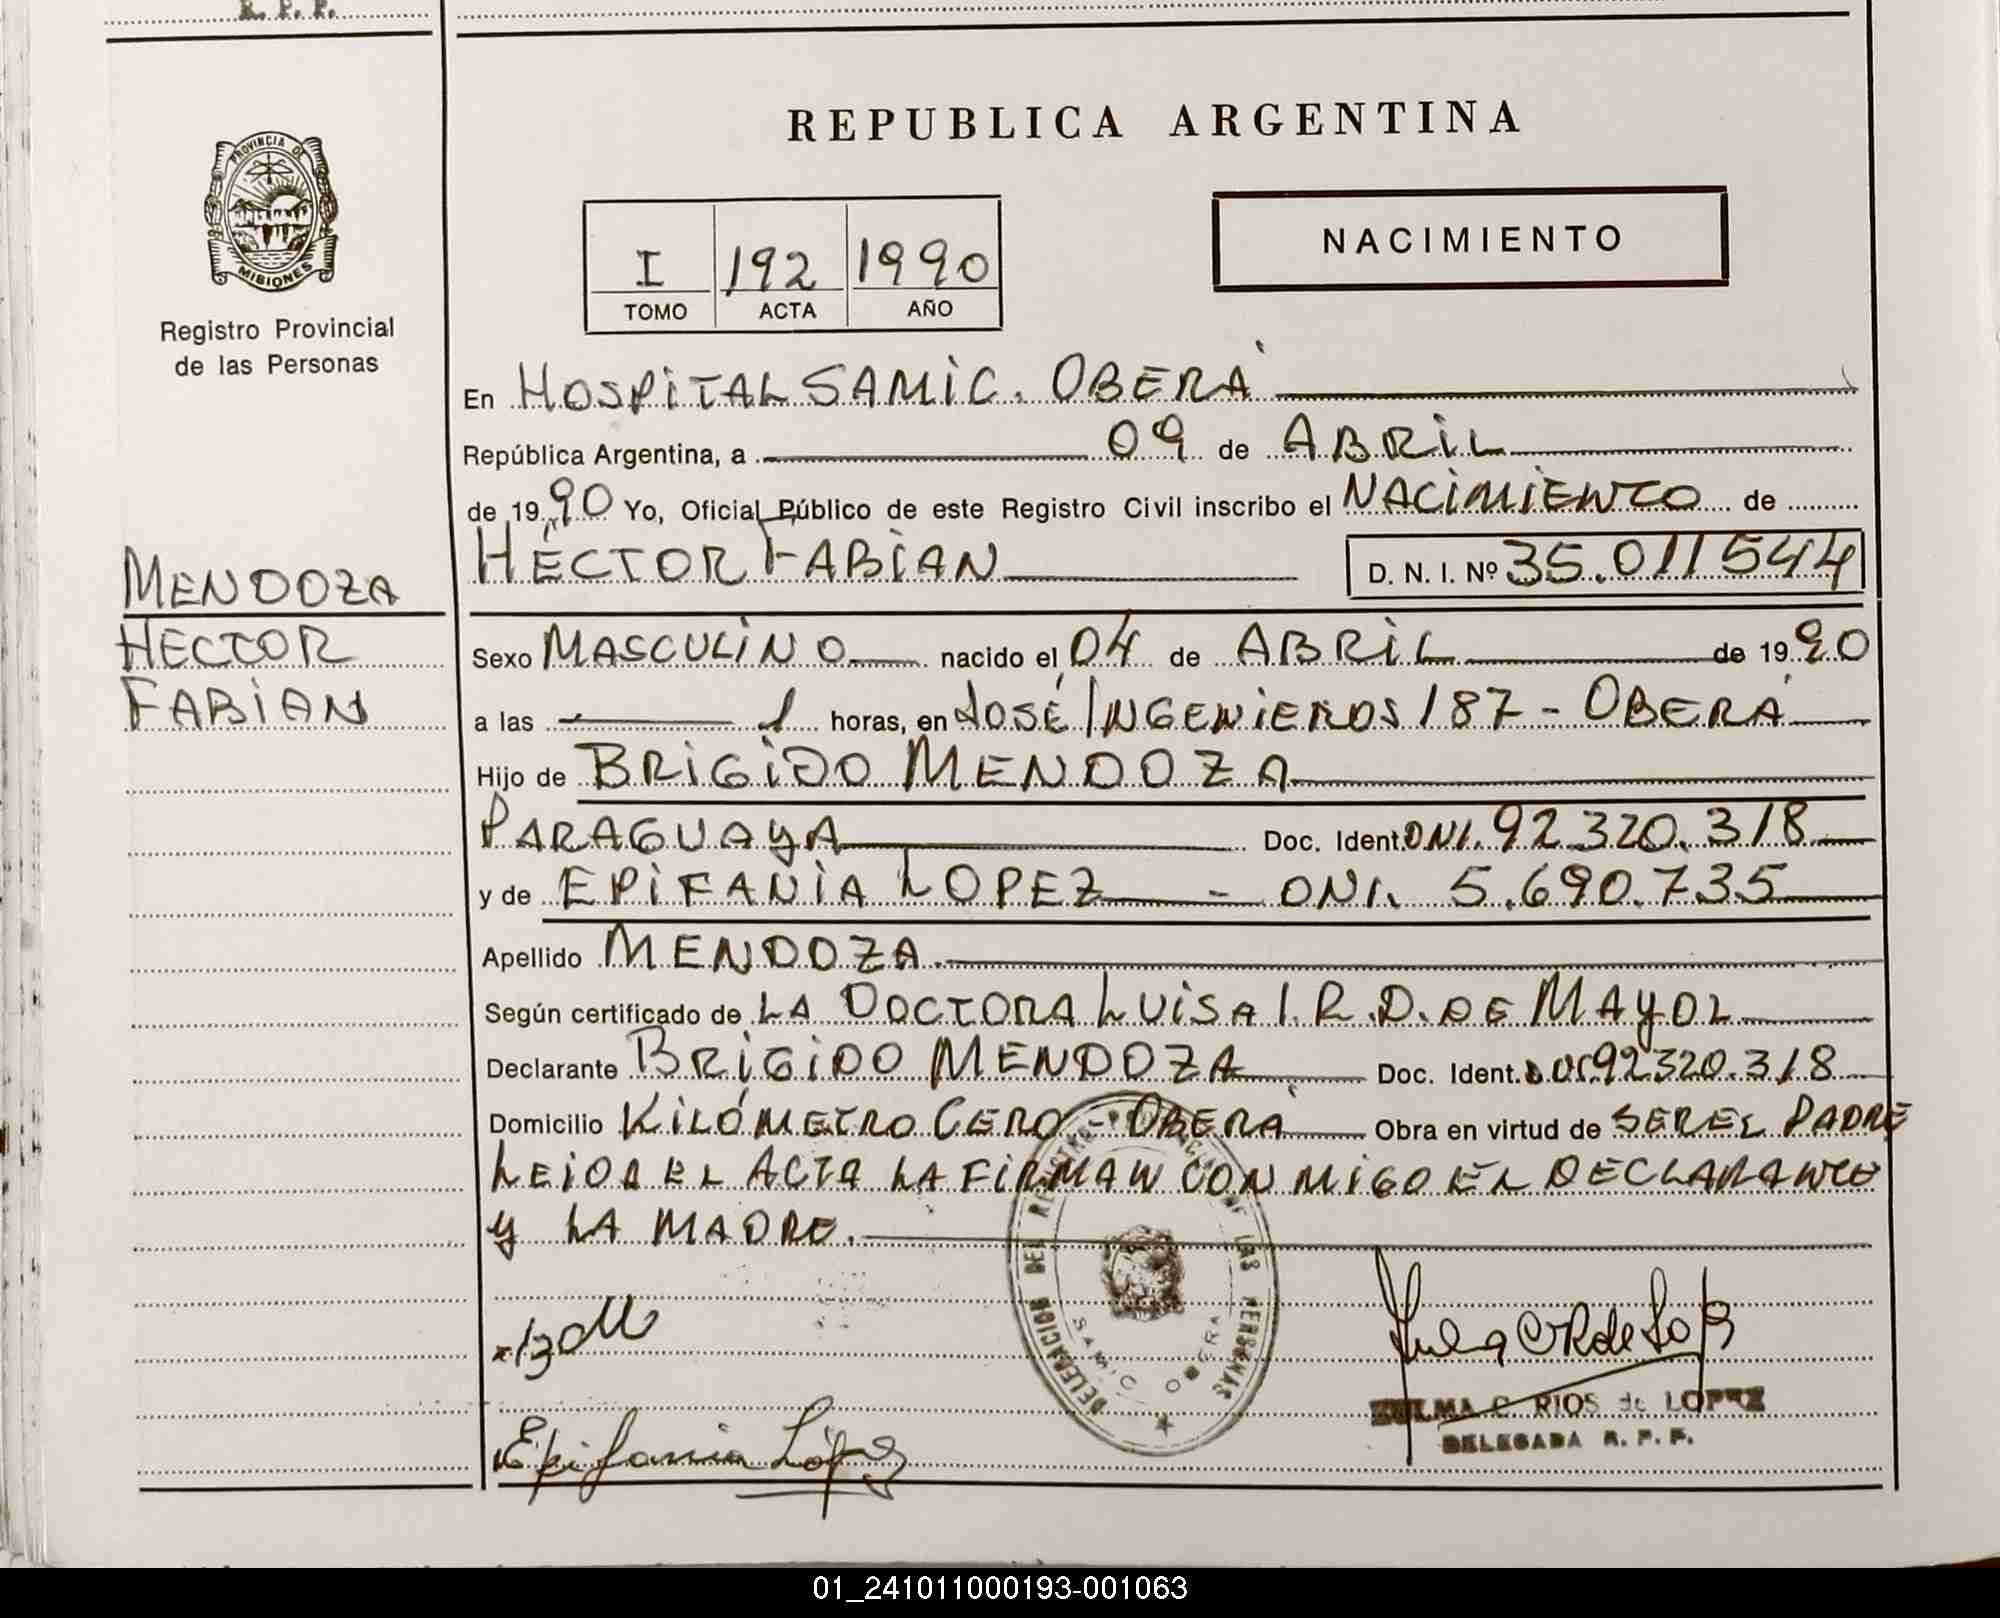 R. P. P.
PROVINCIA DE
MISIONES
Registro Provincial
de las Personas
REPUBLICA ARGENTINA
I 192 1990
TOMO ACTA AÑO
NACIMIENTO
En HOSPITAL SAMIC. OBERÁ
República Argentina, a 09 de ABRIL
de 1990 Yo, Oficial Público de este Registro Civil inscribo el NACIMIENTO de
HÉCTOR FABIAN D. N. I. Nº 35.011544
MENDOZA
HECTOR
FABIAN
Sexo MASCULINO nacido el 04 de ABRIL de 1990
a las 1 horas, en JOSÉ INGENIEROS 187 - OBERÁ
Hijo de BRIGIDO MENDOZA
PARAGUAYA Doc. Ident. DNI. 92.320.318
y de EPIFANIA LOPEZ - DNI. 5.690.735
Apellido MENDOZA.
Según certificado de LA DOCTORA LUISA I. R. D. DE MAYOL
Declarante BRIGIDO MENDOZA Doc. Ident. 92320.318
Domicilio KILÓMETRO CERO - OBERÁ Obra en virtud de SER EL PADRE
LEIDA EL ACTA LA FIRMAN CON MIGO EL DECLARANTE
Y LA MADRE.
DELEGACION DEL REGISTRO PROVINCIAL DE LAS PERSONAS
SAMIC OBERA
Epifania López
ZULMA C. RIOS de LOPEZ
DELEGADA R. P. P.
01_241011000193-001063